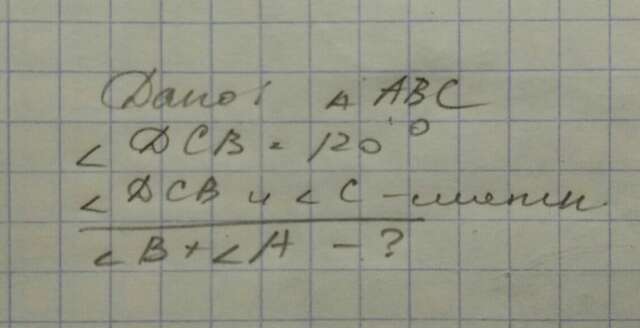 Дано: △ ABC
∠ DCB = 120°
∠ DCB и ∠ C - смежн.
∠ B + ∠ A - ?